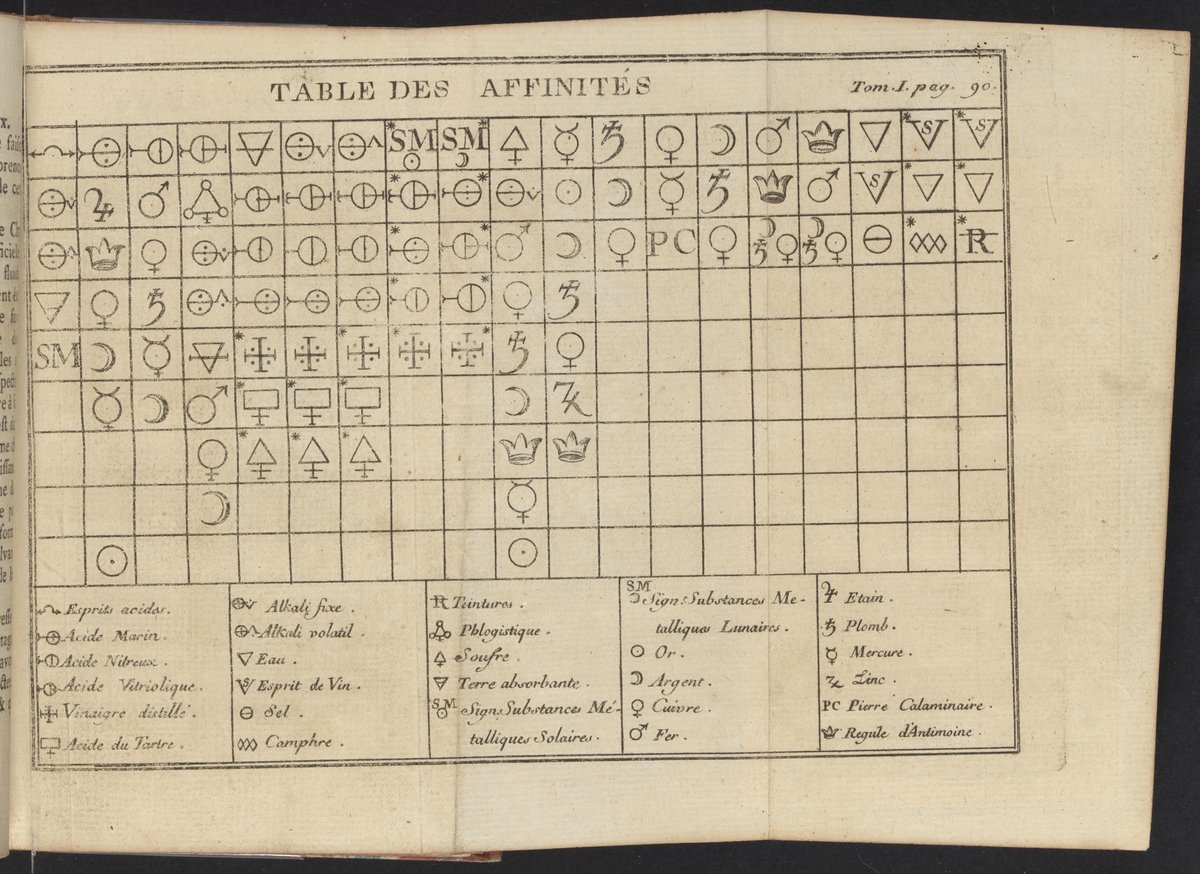 TABLE DES AFFINITÉS
Tom. I. pag. 90.
SM SM
PC
R
SM
Esprits acides.
Acide Marin.
Acide Nitreux.
Acide Vitriolique.
Vinaigre distillé.
Acide du Tartre.
Alkali fixe.
Alkali volatil.
Eau.
Esprit de Vin.
Sel.
Camphre.
R Teintures.
Phlogistique.
Soufre.
Terre absorbante.
SM Sign: Substances Mé-
talliques Solaires.
SM Sign: Substances Mé-
talliques Lunaires.
Or.
Argent.
Cuivre.
Fer.
Etain.
Plomb.
Mercure.
Zinc.
PC Pierre Calaminaire.
Regule d'Antimoine.